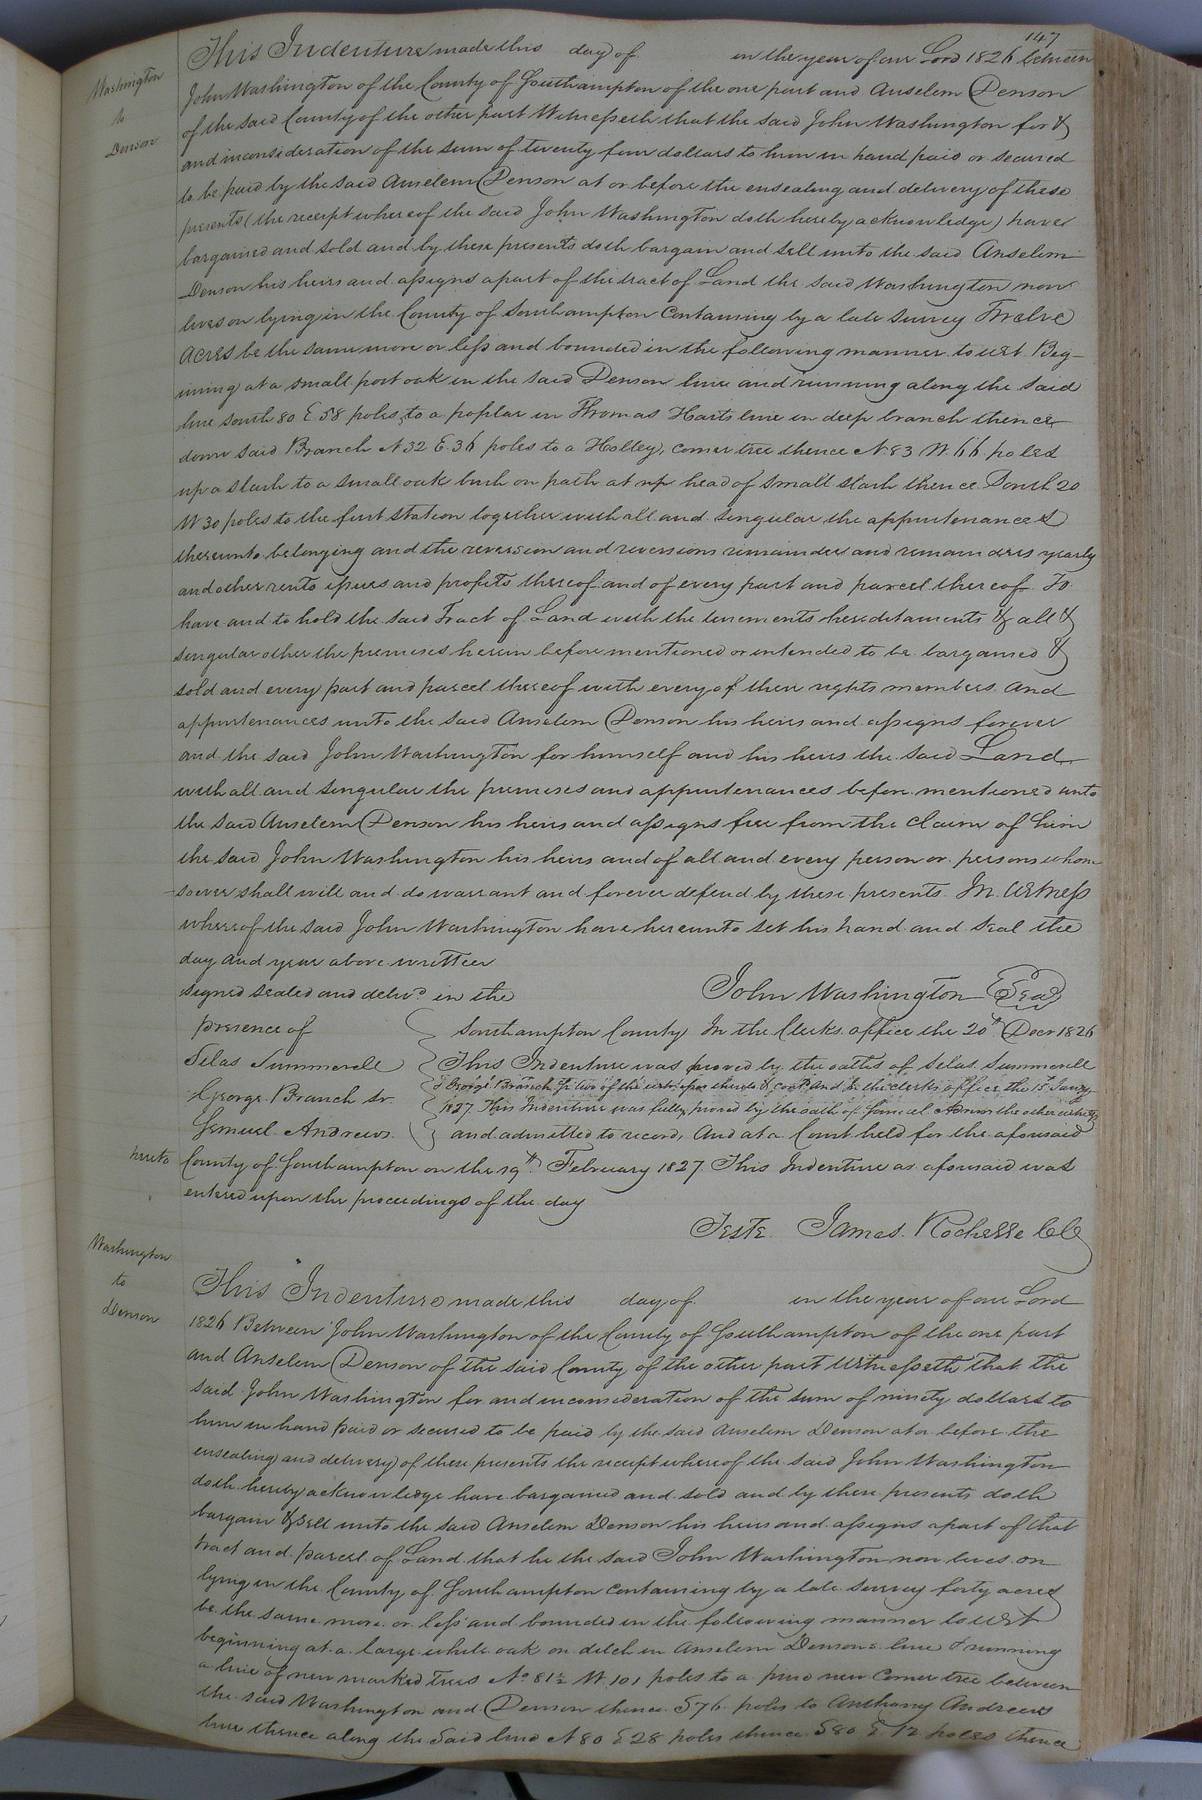 147
Washington
to
Denson
This Indenture made this day of in the year of our Lord 1826 between
John Washington of the County of Southampton of the one part and Anselem Denson
of the said County of the other part Witnesseth that the said John Washington for &
and inconsideration of the sum of twenty four dollars to him in hand paid or secured
to be paid by the said Anselem Denson at or before the ensealing and delivery of these
presents (the receipt whereof the said John Washington doth hereby acknowledge) have
bargained and sold and by these presents doth bargain and sell unto the said Anselem
Denson his heirs and assigns a part of the tract of Land the said Washington now
lives on lying in the County of Southampton Containing by a late survey Twelve
Acres be the same more or less and bounded in the following manner towit Beg-
inning at a small post oak in the said Denson line and running along the said
line south 80 E 58 poles to a poplar in Thomas Harts line in deep branch thence
down said Branch N 32 E 36 poles to a Holley, corner tree thence N. 83 W. 66 poles
up a slash to a small oak bush on path at head of small slash thence South 20
W 30 poles to the first station together with all and singular the appurtenances
thereunto belonging and the reversion and reversions remainder and remainders yearly
and other rents issues and profits thereof and of every part and parcel thereof To
have and to hold the said Tract of Land with the tenements hereditaments & all &
singular other the premises herein before mentioned or intended to be bargained &
sold and every part and parcel thereof with every of their rights members and
appurtenances unto the said Anselem Denson his heirs and assigns forever
and the said John Washington for himself and his heirs the said Land
with all and singular the premises and appurtenances before mentioned unto
the said Anselem Denson his heirs and assigns free from the claim of him
the said John Washington his heirs and of all and every person or persons whom-
soever shall will and do warrant and forever defend by these presents. In Witness
whereof the said John Washington have hereunto set his hand and seal the
day and year above written
signed sealed and delivd in the John Washington Seal
presence of
Silas Summerell
George Branch Sr
Lemuel Andrews.
Southampton County In the Clerks office the 20th Decr 1826
This Indenture was proved by the oaths of Silas Summerell
& George Branch Sr two of the witnesses thereto & contd And In the clerks office the 15 Jany
1827 This Indenture was fully proved by the oath of Lemuel Andrews the other witness
hereto
and admitted to record, And at a Court held for the aforesaid
County of Southampton on the 19th February 1827 This Indenture as aforesaid was
entered upon the proceedings of the day
Teste James Rochelle CC
Washington
to
Denson
This Indenture made this day of in the year of our Lord
1826 Between John Washington of the County of Southampton of the one part
and Anselem Denson of the said County of the other part Witnesseth that the
said John Washington for and inconsideration of the sum of ninety dollars to
him in hand paid or secured to be paid by the said Anselem Denson at or before the
ensealing and delivery of these presents the receipt whereof the said John Washington
doth hereby acknowledge have bargained and sold and by these presents doth
bargain & sell unto the said Anselem Denson his heirs and assigns a part of that
tract and parcel of Land that he the said John Washington now lives on
lying in the County of Southampton containing by a late survey forty acres
be the same more or less and bounded in the following manner towit
beginning at a large white oak on ditch in Anselem Densons line & running
a line of new marked trees No 81½ W. 101 poles to a pine new corner tree between
the said Washington and Denson thence S 76 poles to Anthony Andrews
line thence along the said line N 80 E 28 poles thence S 80 E 12 poles thence